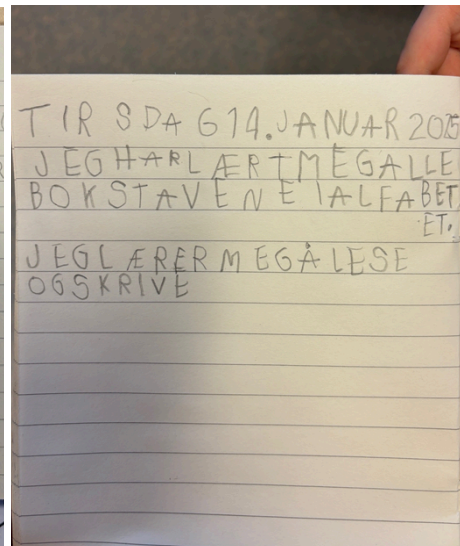 TIRSDAG 14. JANUAR 2025
JEG HAR LÆRT MEG ALLE
BOKSTAVENE I ALFABET
ET.
JEG LÆRER MEG Å LESE
OG SKRIVE